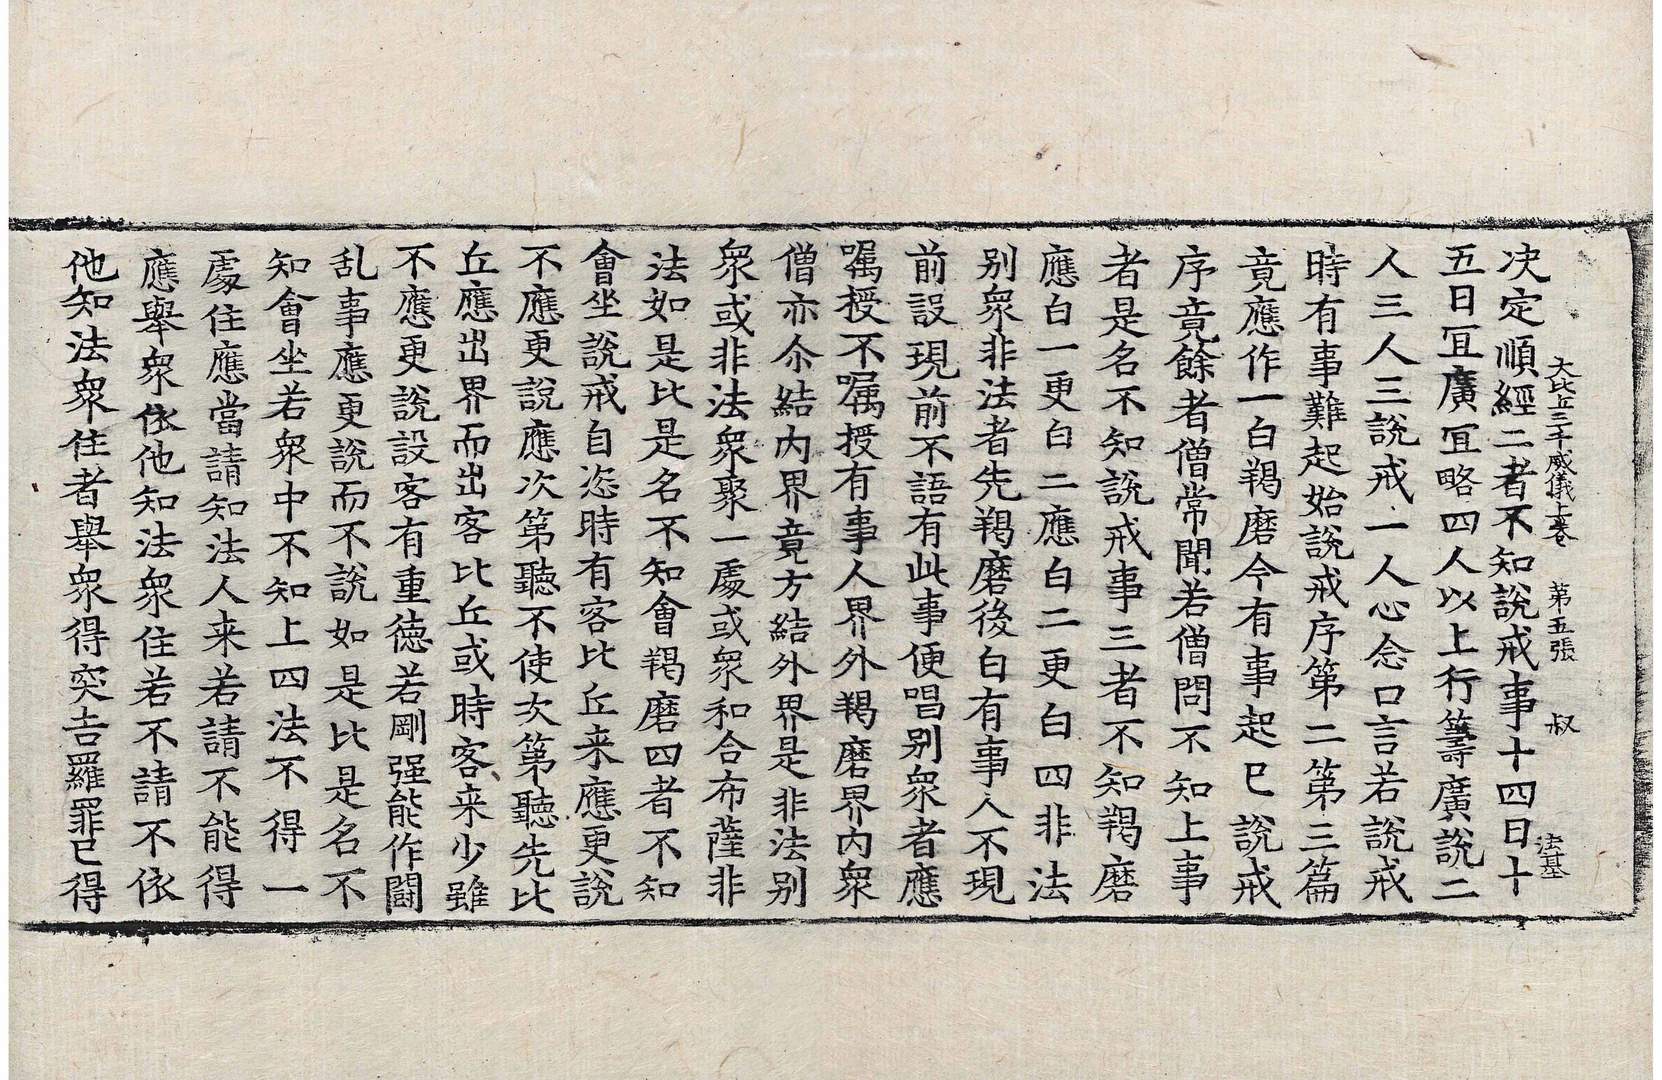 决定順經二者不知說戒事十四日十
大比丘三千威儀上卷 第五張 叔 法基
五日冝廣冝略四人以上行籌廣說二
人三人三說戒一人心念口言若說戒
時有事難起始說戒序第二第三篇
竟應作一白羯磨今有事起已說戒
序竟餘者僧常聞若僧問不知上事
者是名不知說戒事三者不知羯磨
應白一更白二應白二更白四非法
别衆非法者先羯磨後白有事人不現
前設現前不語有此事便唱别衆者應
嘱授不嘱授有事人界外羯磨界内衆
僧亦尒結内界竟方結外界是非法别
衆或非法衆聚一處或衆和合布薩非
法如是比是名不知會羯磨四者不知
會坐說戒自恣時有客比丘来應更說
不應更說應次第聽不使次第聽先比
丘應出界而出客比丘或時客来少雖
不應更說設客有重德若剛强能作鬪
乱事應更說而不說如是比是名不
知會坐若衆中不知上四法不得一
處住應當請知法人来若請不能得
應舉衆依他知法衆住若不請不依
他知法衆住者舉衆得突吉羅罪已得